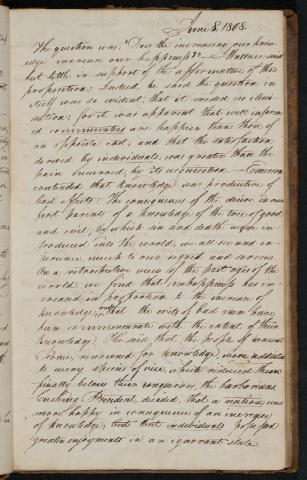 June 8, 1808.
The question was, "Does the increasing our know-
ledge increase our happiness?" — J. Wallace said
but little in support of the affirmative of this
proposition: Indeed, he said the question in
itself was so evident, that it needed no eluci-
dation; for it was apparent that well inform-
ed communities are happier than those of
an opposite cast; and that the satisfaction
derived by individuals, was greater than the
pain incurred, by its acquisition. —
contended that knowledge was productive of
bad effects. The consequence of the desire in our
first parents of a knowledge of the tree of good
and evil, by which sin and death were in-
troduced into the world, we all see and ex-
perience much to our regret and sorrow.
On a retrospective view of the past ages of the
world we find that unhappiness has in-
creased in proportion to the increase of
knowledge, and that the evils of bad men have
been commensurate with the extent of their
knowledge. He said that the people of ancient
Rome, renowned for knowledge, were addicted
to many species of vice, which reduced them
finally below their conquerors, the barbarians.
Cushing, President, decided, that a nation was
more happy in consequence of an increase
of knowledge, but that individuals possessed
greater enjoyments in an ignorant state.